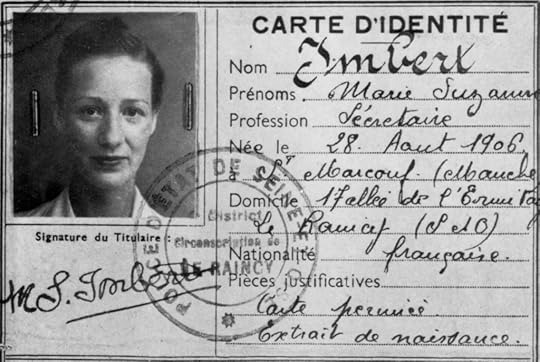 CARTE D'IDENTITÉ
Nom Imbert
Prénoms Marie Suzanne
Profession Sécretaire
Née le 28 Aout 1906
à St Marcouf (Manche
Domicile 17 allée de l'Ermitag
Le Raincy (S et O)
Nationalité française.
Pièces justificatives
Carte permiée
Extrait de naissance.
Signature du Titulaire :
M S. Imbert
DE SEINE ET O
District
Circonscription de
LE RAINCY